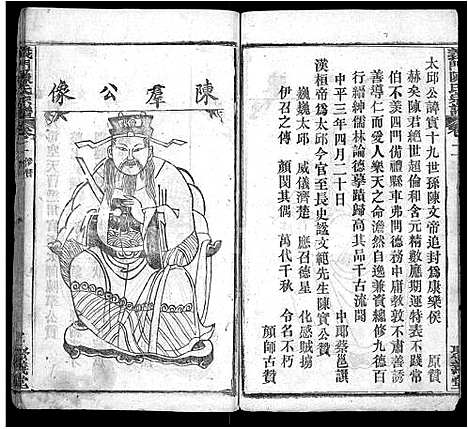 義門陳氏宗譜
太邱公諱實十九世孫陳文帝追封爲康樂侯 原贊
赫矣陳君絕世超倫和含元精數應期運特表不踐常
伯不羨四門備禮縣車弗問德務中庸教敦不肅善誘
善導仁而愛人樂天之命澹然自逸兼資總修九德百
行縉紳儒林論德摹蹟歸高其品千古流聞
中平三年四月二十日 中郎蔡邕譔
漢桓帝爲太邱令官至長史諡文範先生陳實公贊
巍巍太邱 威儀濟楚 應召德星 化感賊壤
伊召之傳 顏閔其偶 萬代千秋 令名不朽
顏師古贊
陳羣公像
義門陳氏宗譜